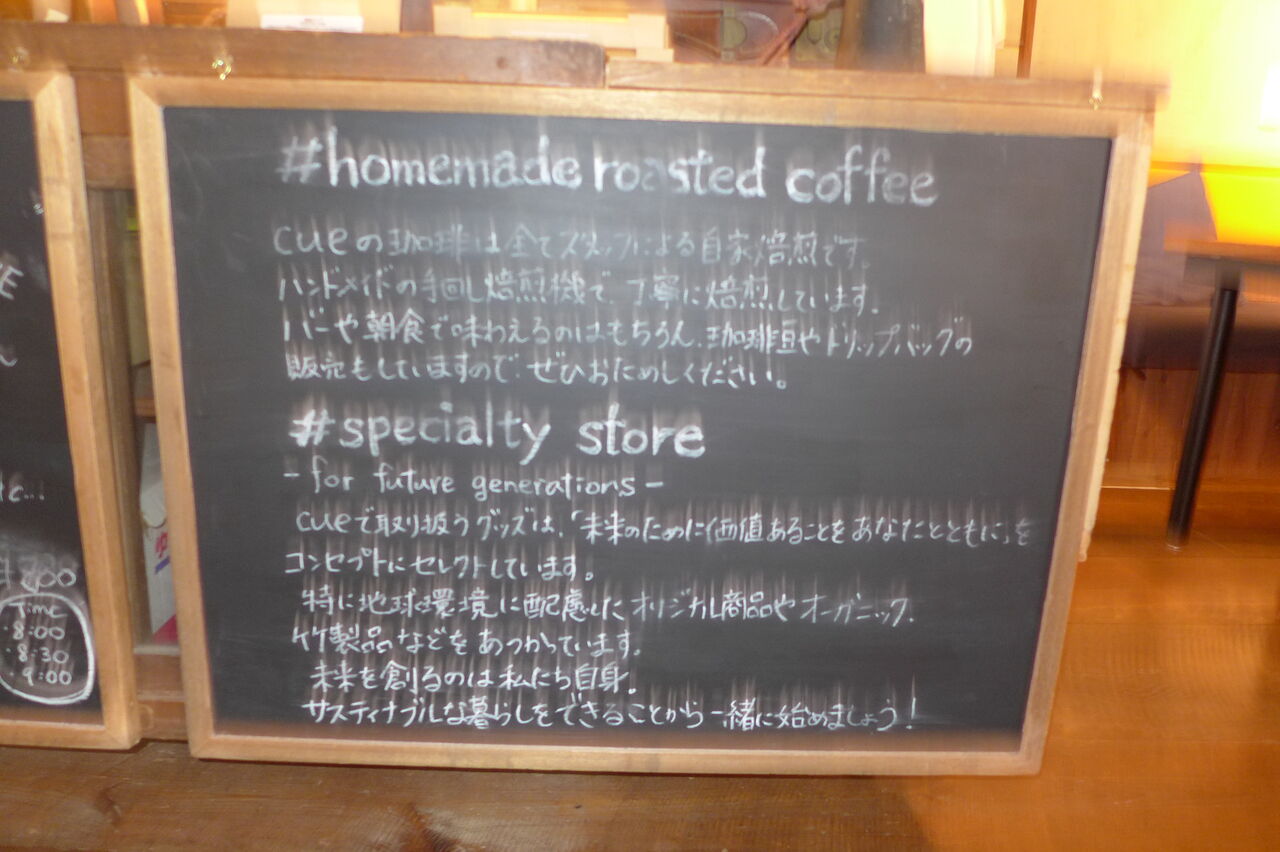 #homemade roasted coffee
cueの珈琲は全てスタッフによる自家焙煎です。
ハンドメイドの手回し焙煎機で、丁寧に焙煎しています。
バーや朝食で味わえるのはもちろん、珈琲豆やドリップバッグの
販売もしていますので、ぜひおためしください。
#specialty store
- for future generations -
cueで取り扱うグッズは、「未来のために価値あることをあなたとともに」を
コンセプトにセレクトしています。
特に地球環境に配慮したオリジナル商品やオーガニック、
竹製品などをあつかっています。
未来を創るのは私たち自身。
サスティナブルな暮らしをできることから一緒に始めましょう!
Time
・8:00
・8:30
・9:00